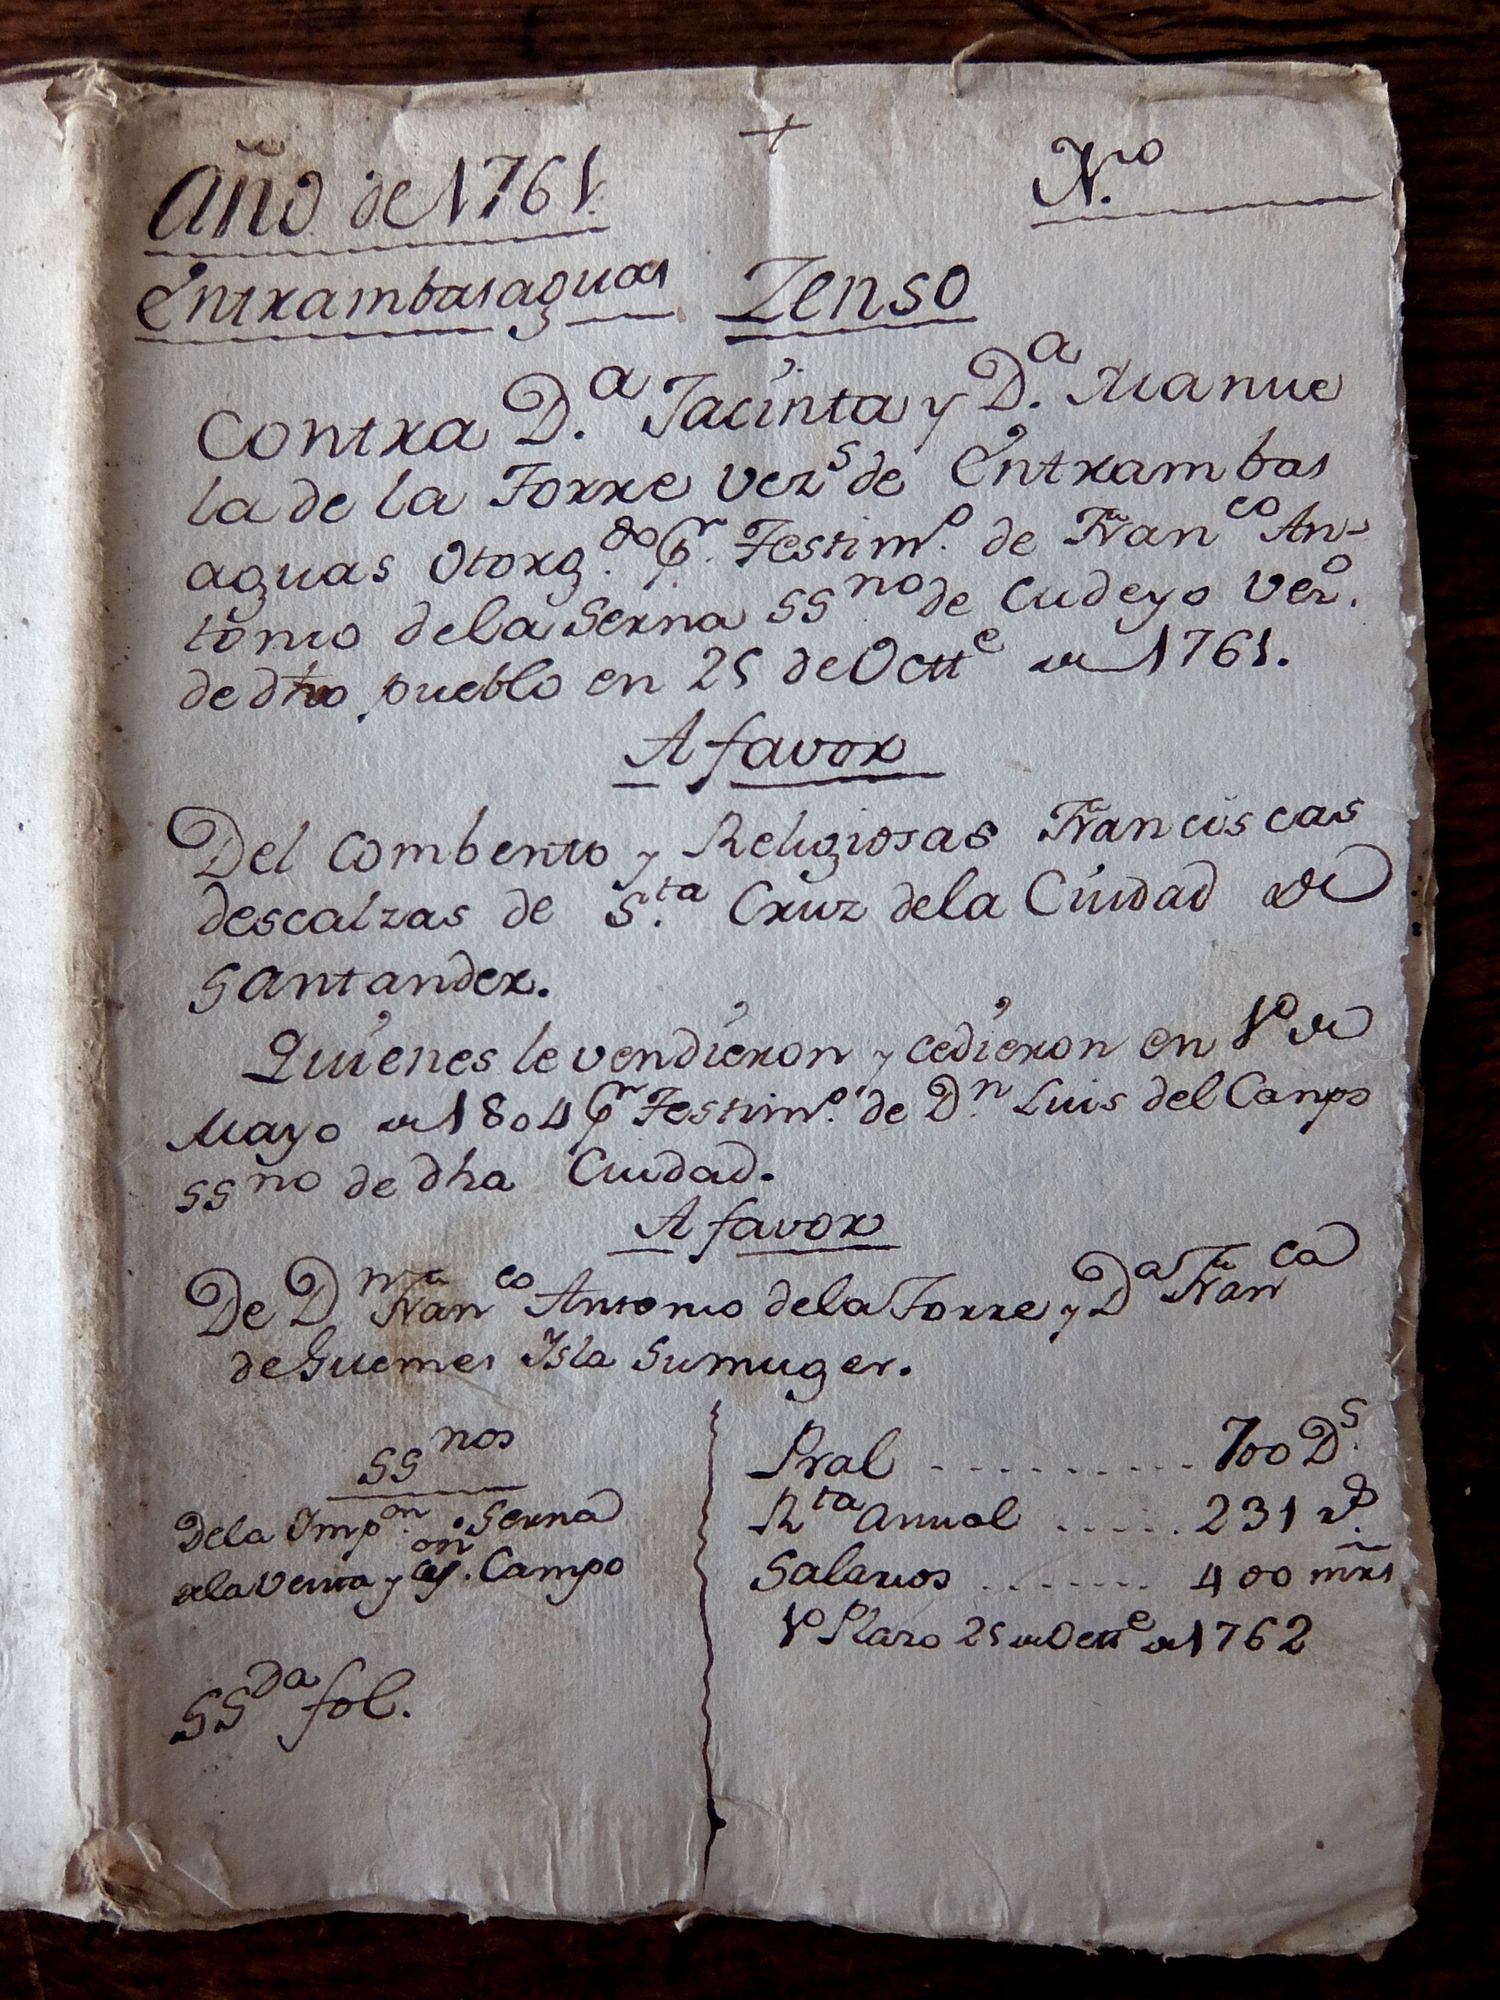 +
Año de 1761.
N.ro
Entrambasaguas Zenso
Contra D.a Jacinta y D.a Manue
la de la Torre vezs de Entrambas
aguas Otorg.do Pr. Testim.o de Franco An-
tonio de la Serna SSno de Cudeyo vezo.
de dho pueblo en 25 de Octte de 1761.
A favor
Del Combento y Religiosas Franciscas
descalzas de S.ta Cruz de la Ciudad de
Santander.
Quienes le vendieron y cedieron en 1o de
Mayo de 1804 Pr Testim.o de Dn Luis del Campo
SSno de dha Ciudad.
A favor
De Dn Franco Antonio de la Torre y Da Franca
de Guemes Isla Su muger.
SSnos
De la Impon. Serna
de la Venta y Ceson. Campo
SSDa fol.
Pral .......... 700 Ds.
Rta anual ..... 231 rs.
Salarios ....... 400 mrs
1o Plazo 25 de Octte de 1762